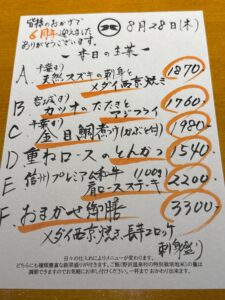 皆様のおかげで
6周年迎えました
ありがとうございます。
8月28日(木)
ー 本日のお菜 ー
A 千葉より
天然スズキの刺身と
メダイ西京焼き 1870.
B 宮城より
カツオのたたきと
アジフライ 1760.
C 千葉より
金目鯛煮つけ(かぶと付) 1980.
D 重ねロースのとんかつ 1540.
E 信州プレミアム和牛 100g
肩ロースステーキ 2200.
F おまかせ御膳 3300.
メダイ西京焼き、長芋コロッケ
刺身盛り
日々の仕入れによりメニューが変わります。